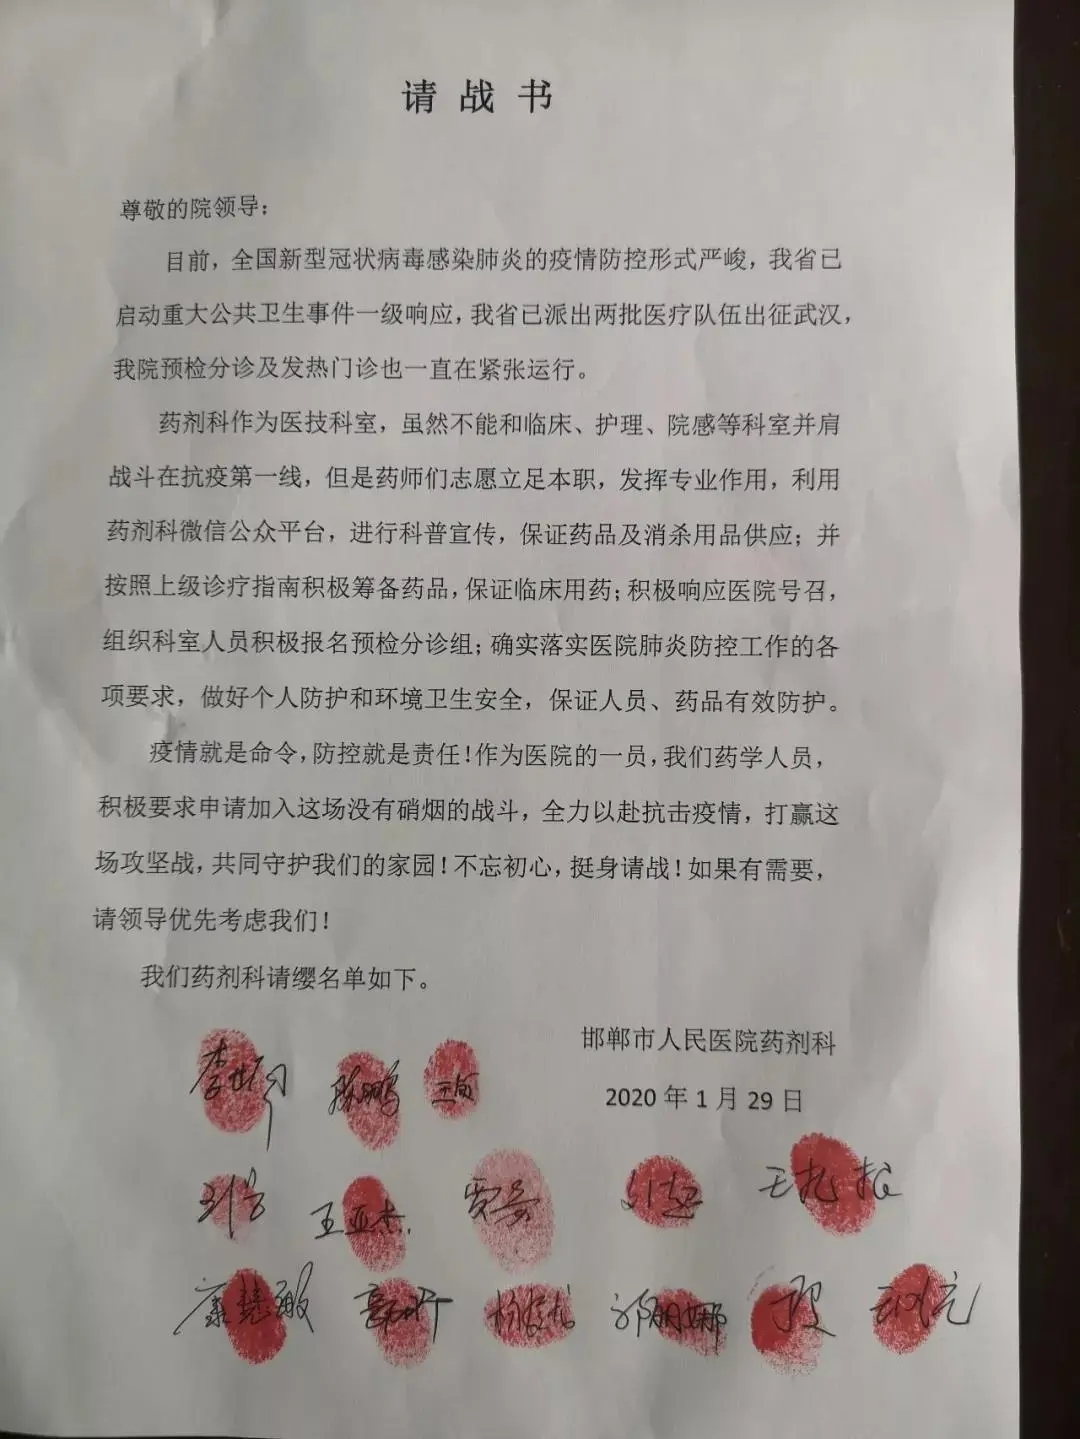 请战书
尊敬的院领导：
目前，全国新型冠状病毒感染肺炎的疫情防控形式严峻，我省已
启动重大公共卫生事件一级响应，我省已派出两批医疗队伍出征武汉，
我院预检分诊及发热门诊也一直在紧张运行。
药剂科作为医技科室，虽然不能和临床、护理、院感等科室并肩
战斗在抗疫第一线，但是药师们志愿立足本职，发挥专业作用，利用
药剂科微信公众平台，进行科普宣传，保证药品及消杀用品供应；并
按照上级诊疗指南积极筹备药品，保证临床用药；积极响应医院号召，
组织科室人员积极报名预检分诊组；确实落实医院肺炎防控工作的各
项要求，做好个人防护和环境卫生安全，保证人员、药品有效防护。
疫情就是命令，防控就是责任！作为医院的一员，我们药学人员，
积极要求申请加入这场没有硝烟的战斗，全力以赴抗击疫情，打赢这
场攻坚战，共同守护我们的家园！不忘初心，挺身请战！如果有需要，
请领导优先考虑我们！
我们药剂科请缨名单如下。
邯郸市人民医院药剂科
2020年1月29日
王亚杰
康慧敏